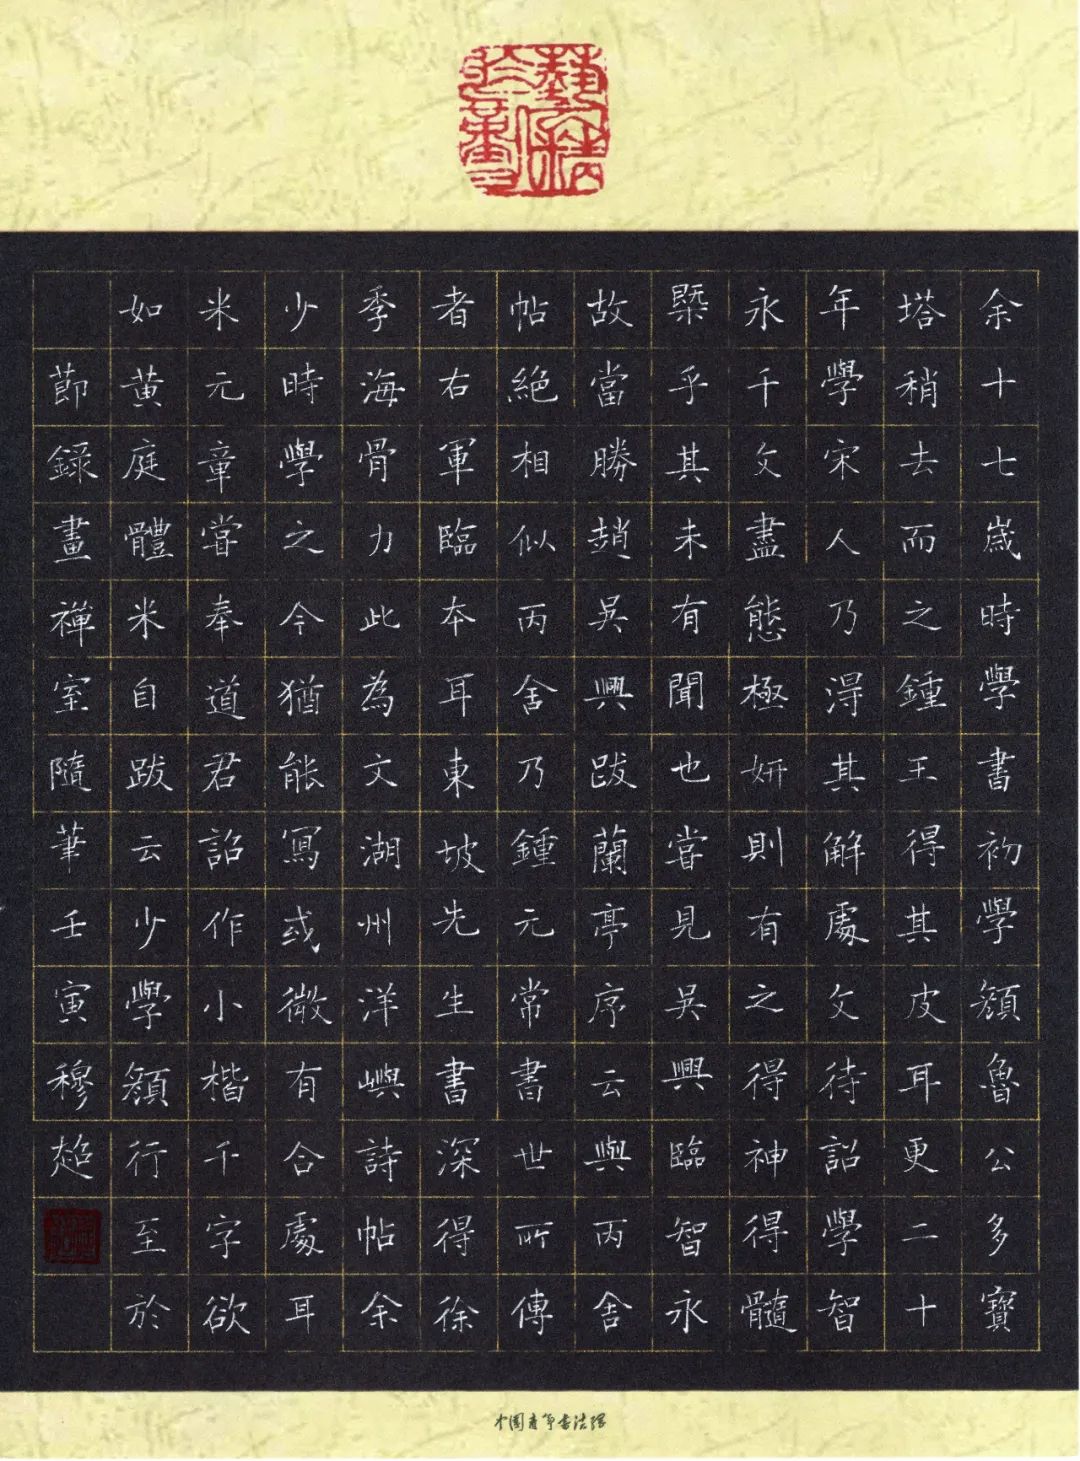 余十七歲時學書初學顏魯公多寶
塔稍去而之鍾王得其皮耳更二十
年學宋人乃得其解處文待詔學智
永千文盡態極妍則有之得神得髓
槩乎其未有聞也嘗見吳興臨智永
故當勝趙吳興跋蘭亭序云與丙舍
帖絕相似丙舍乃鍾元常書世所傳
者右軍臨本耳東坡先生書深得徐
季海骨力此為文湖州洋嶼詩帖余
少時學之今猶能寫或微有合處耳
米元章嘗奉道君詔作小楷千字欲
如黃庭體米自跋云少學顏行至於
節錄畫禪室隨筆壬寅穆趉
中國青年書法隊